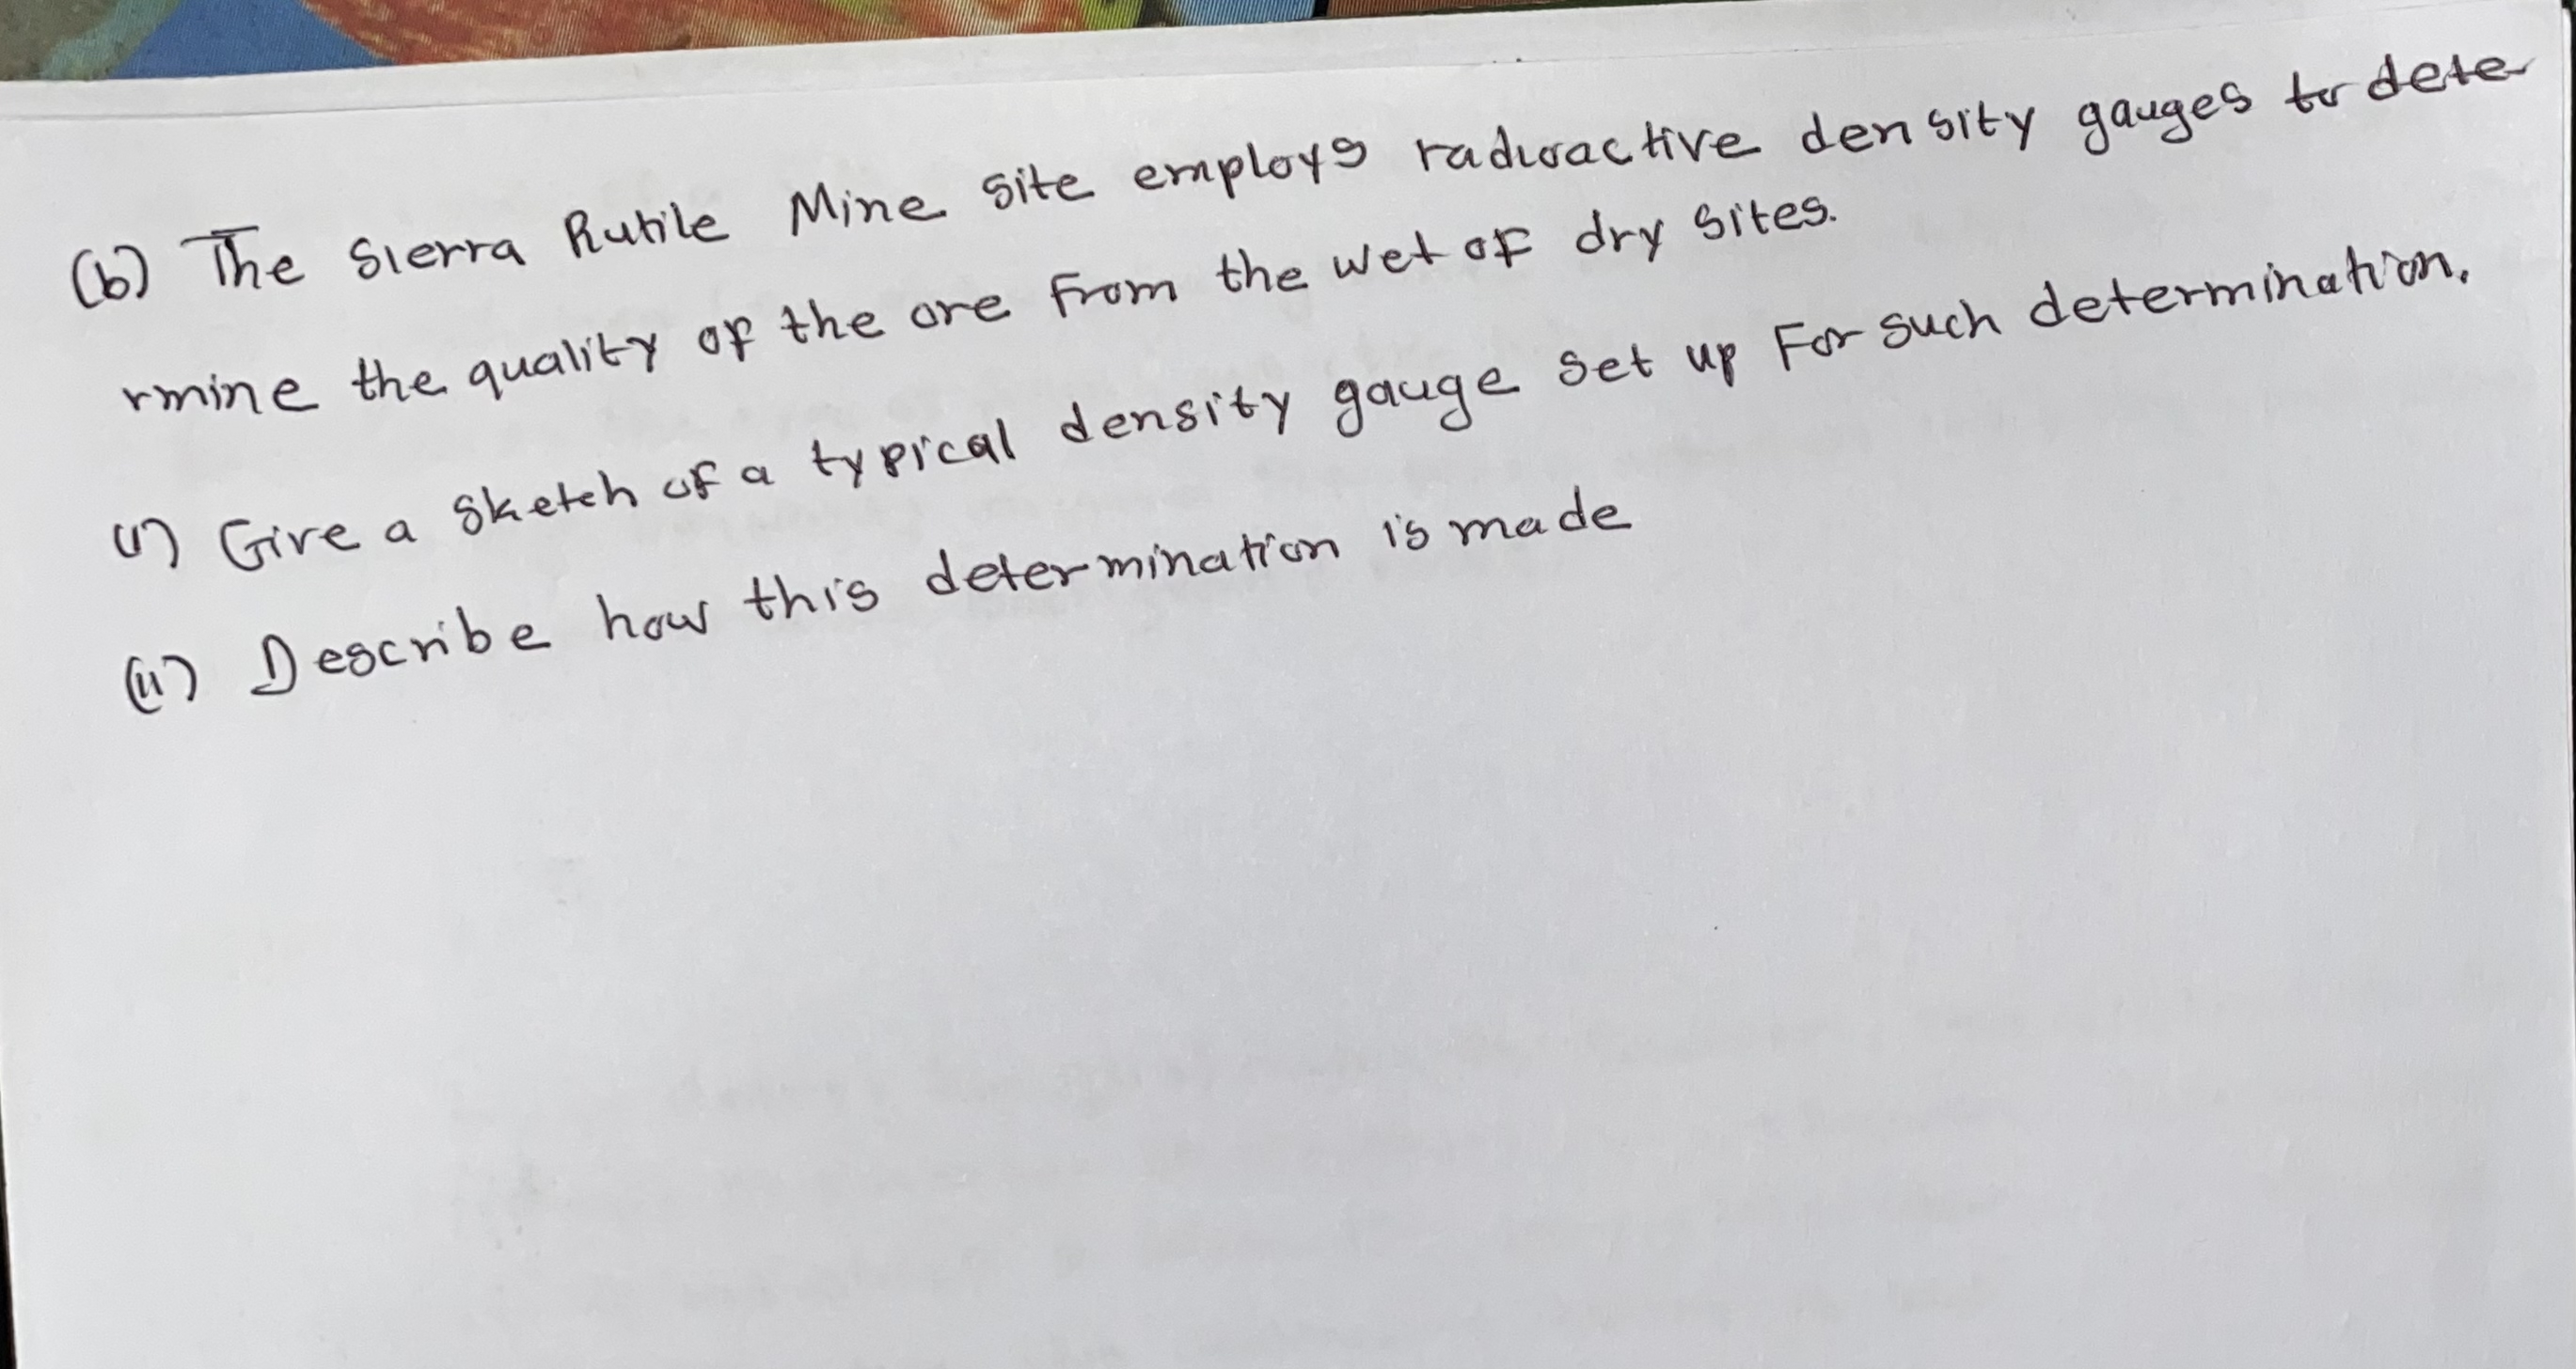 (b) The Sierra Rutile Mine site employs radioactive density gauges to dete
rmine the quality of the ore from the wet of dry sites.
(i) Give a sketch of a typical density gauge set up For such determination.
(ii) Describe how this determination is made